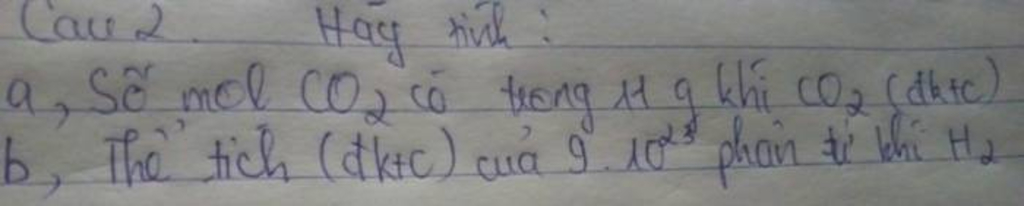 Câu 2. Hãy tính :
a, Số mol CO₂ có trong 11 g khí CO₂ (đktc)
b, Thể tích (đktc) của 9.10²³ phân tử khí H₂